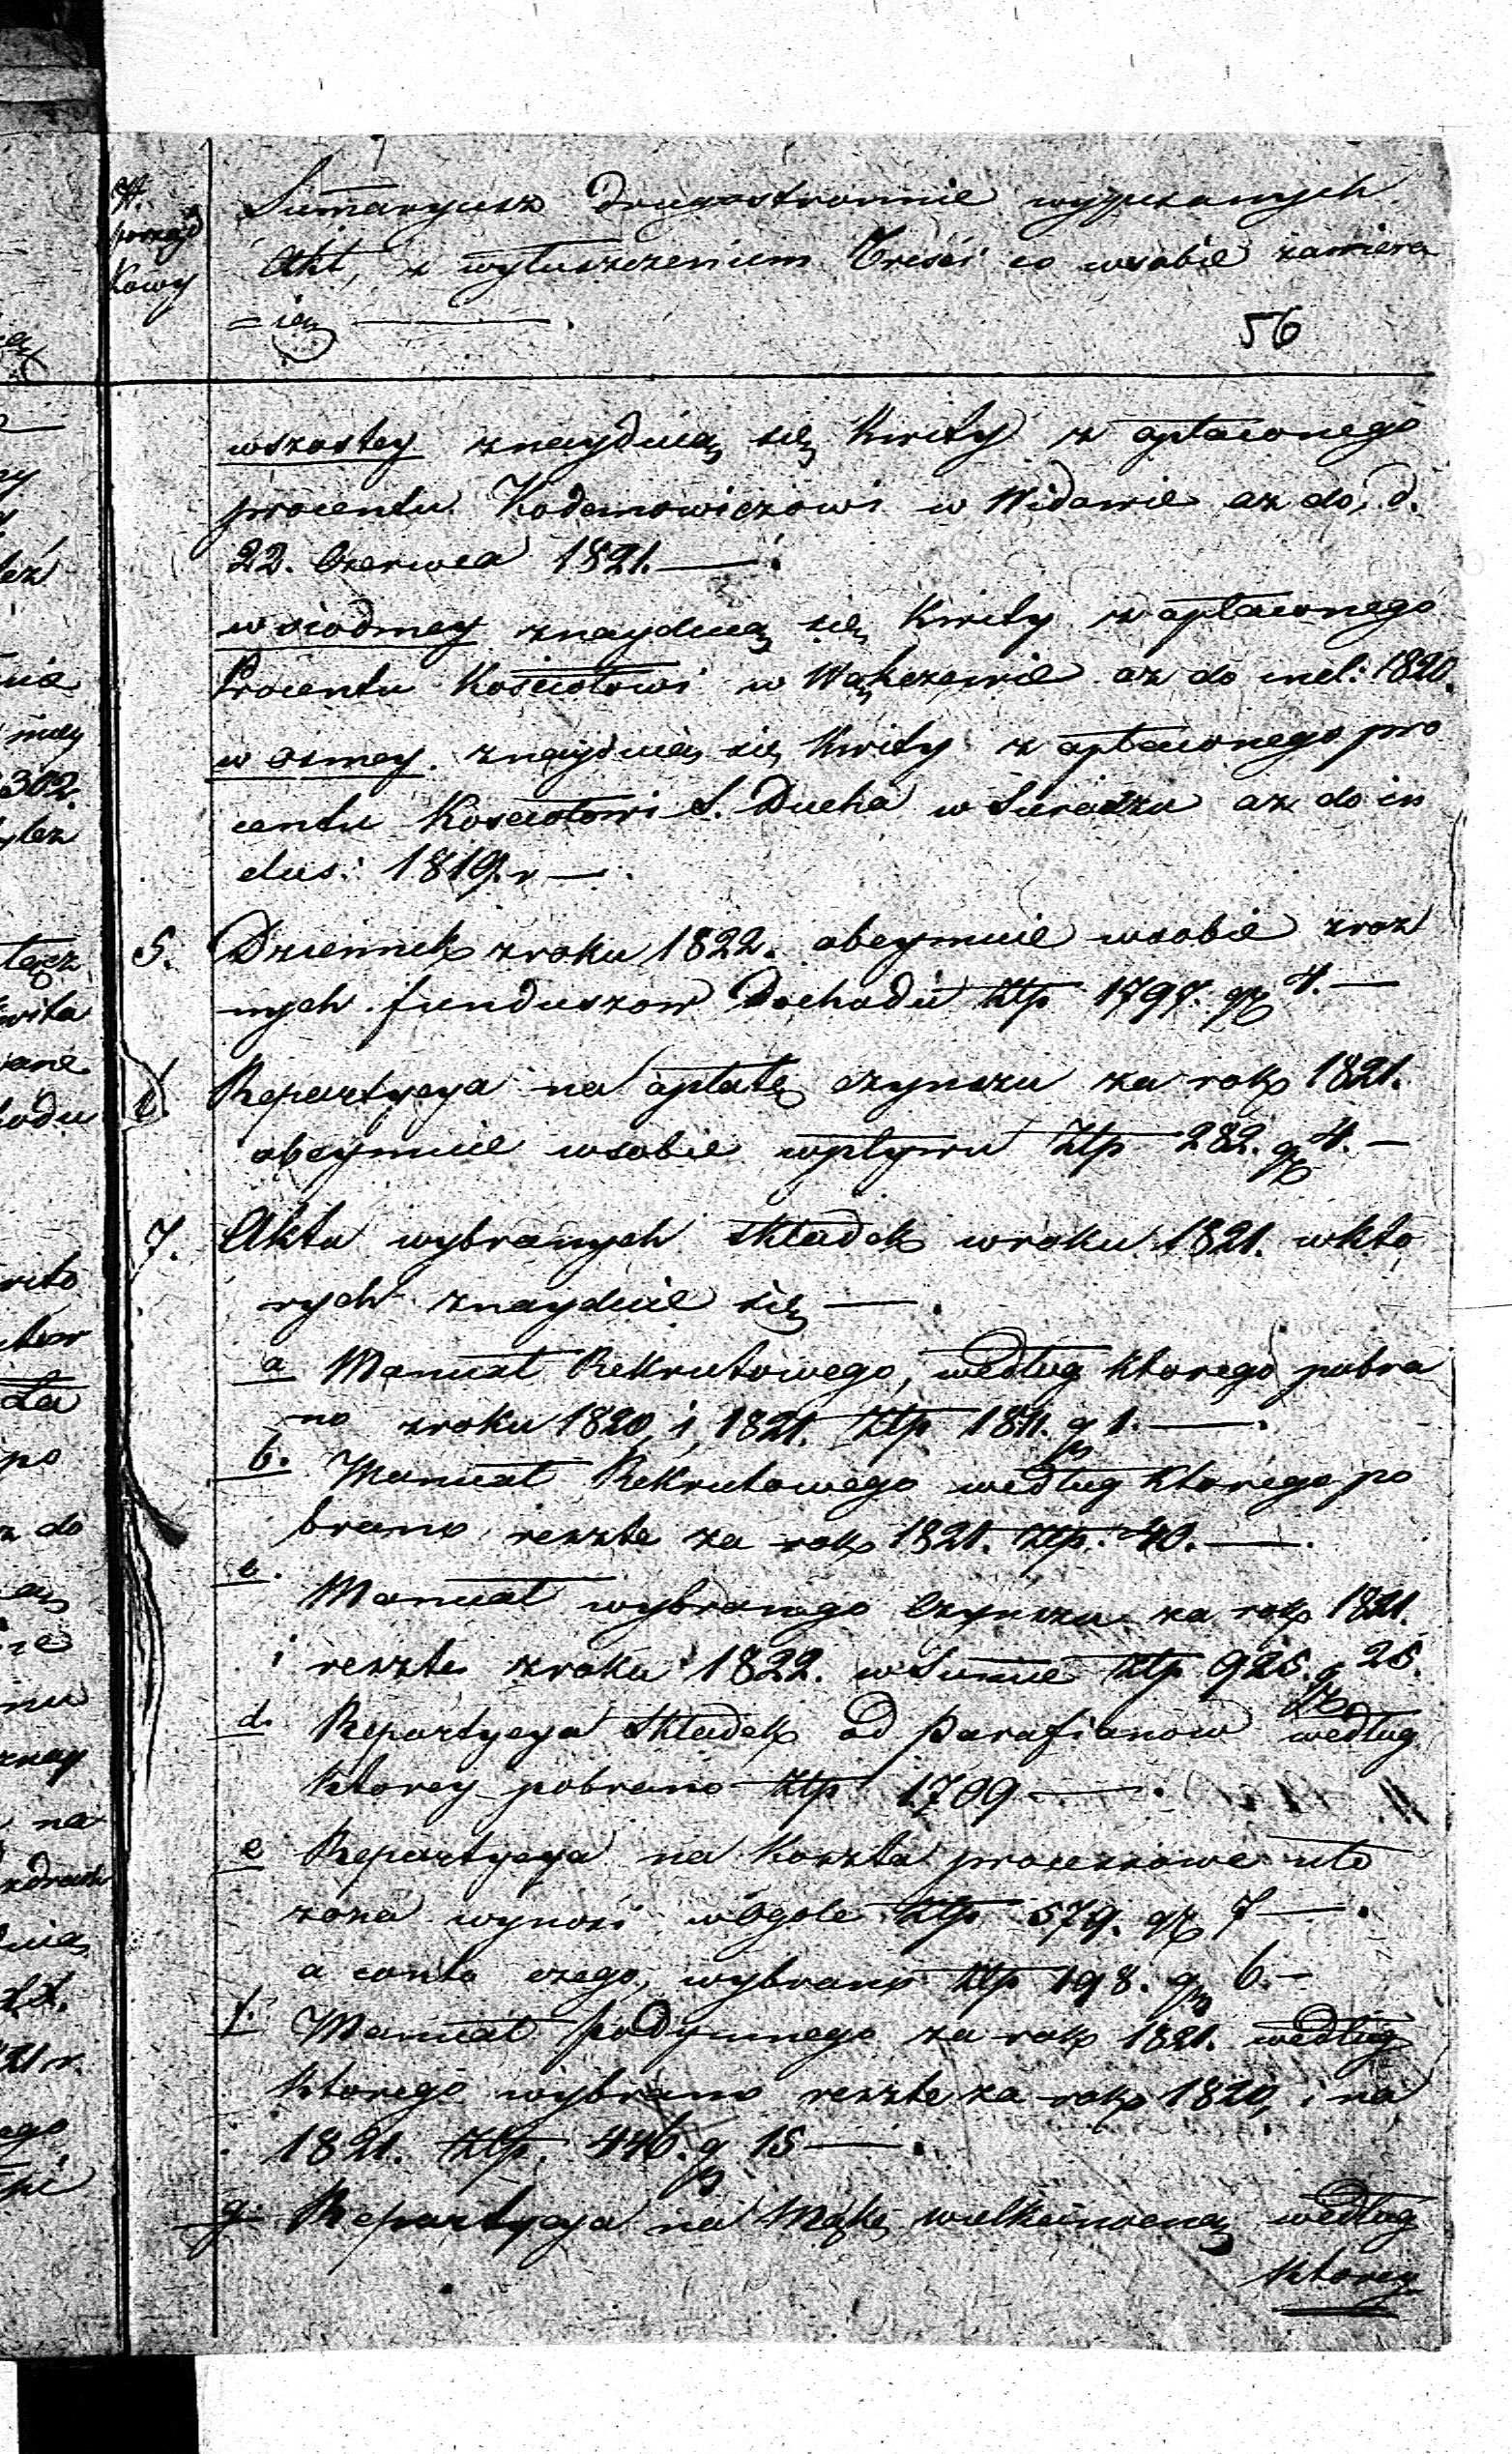 N. Sumaryusz drugostronnie wypisanych
porząd
Akt, z wyłuszczeniem Treści co wsobie zamiera
kowy
=ią —.
56
wszostey znayduią się Kwity z opłaconego
procentu Kodamowiczowi w Widawie az do d.
22. Czerwca 1821. —.
w siodmey znayduią się Kwity z opłaconego
Procentu Kościołowi w az do incl: 1820.
w osmey. znayduią się Kwity z opłaconego pro
centu Kosciołowi S. Ducha w Sieradzu az do in
clus: 1819. r —.
5. Dziennik zroku 1822. obeymuie wsobie zroz
nych funduszow Dochodu Złp 1797. gr 4. —
6. Repartycya na opłatę czynszu za rok 1821.
obeymuie wsobie wpływu Złp 282. gr 4. —
7. Akta wybranych składek wroku 1821. wkto
rych znayduie się —.
a Manuał Rekrutowego, według ktorego pobra
no zroku 1820, i, 1821. Złp 1811. gr 1. —.
b. Manuał Rekrutowego według ktorego po
brano, reszte za rok 1821. Złp. 40. —.
c. Manuał wybranego Czynszu za rok 1821.
i reszte zroku 1822. w Sumie Złp 925. gr 25.
d. Repartycya składek od parafianow według
ktorey pobrano Złp 1709 —.
e Repartycya na koszta processowe uło
zona wynosi wogole Złp 579. gr 7 —.
a conto czego, wybrano Złp 198. gr 6. —
f. Manuał podymnego za rok 1821. według
ktorego wybrano reszte za rok 1820, i na
1821. Złp. 446. gr 15 —.
g. Repartycya na Mękę wielkanocną według
ktorey